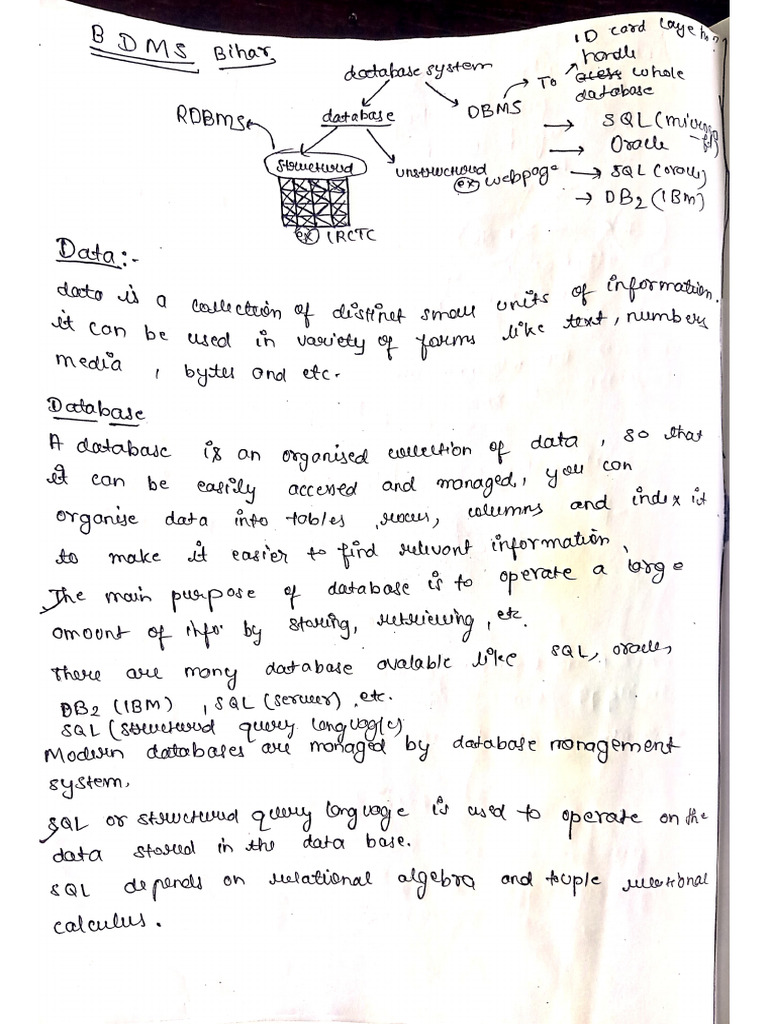 BDMS Bihar
ID card laye ho?
handle
To acess whole
database
database system
database
DBMS
RDBMS
structured
unstructured
ex webpage
ex IRCTC
→ SQL (microsoft)
→ Oracle
→ SQL (oracle)
→ DB2 (IBM)
Data:-
data is a collection of distinct small units of information.
it can be used in variety of forms like text, numbers
media, bytes and etc.
Database
A database is an organised collection of data, so that
it can be easily accessed and managed, you can
organise data into tables, rows, columns and index it
to make it easier to find relevant information
The main purpose of database is to operate a large
amount of info. by storing, retrieving, etc.
there are many database avalable like SQL, oracle,
DB2 (IBM), SQL (server), etc.
SQL (structured query language)
Modern databases are managed by database management
system.
SQL or structured query language is used to operate on the
data stored in the data base.
SQL depends on relational algebra and tuple relational
calculus.